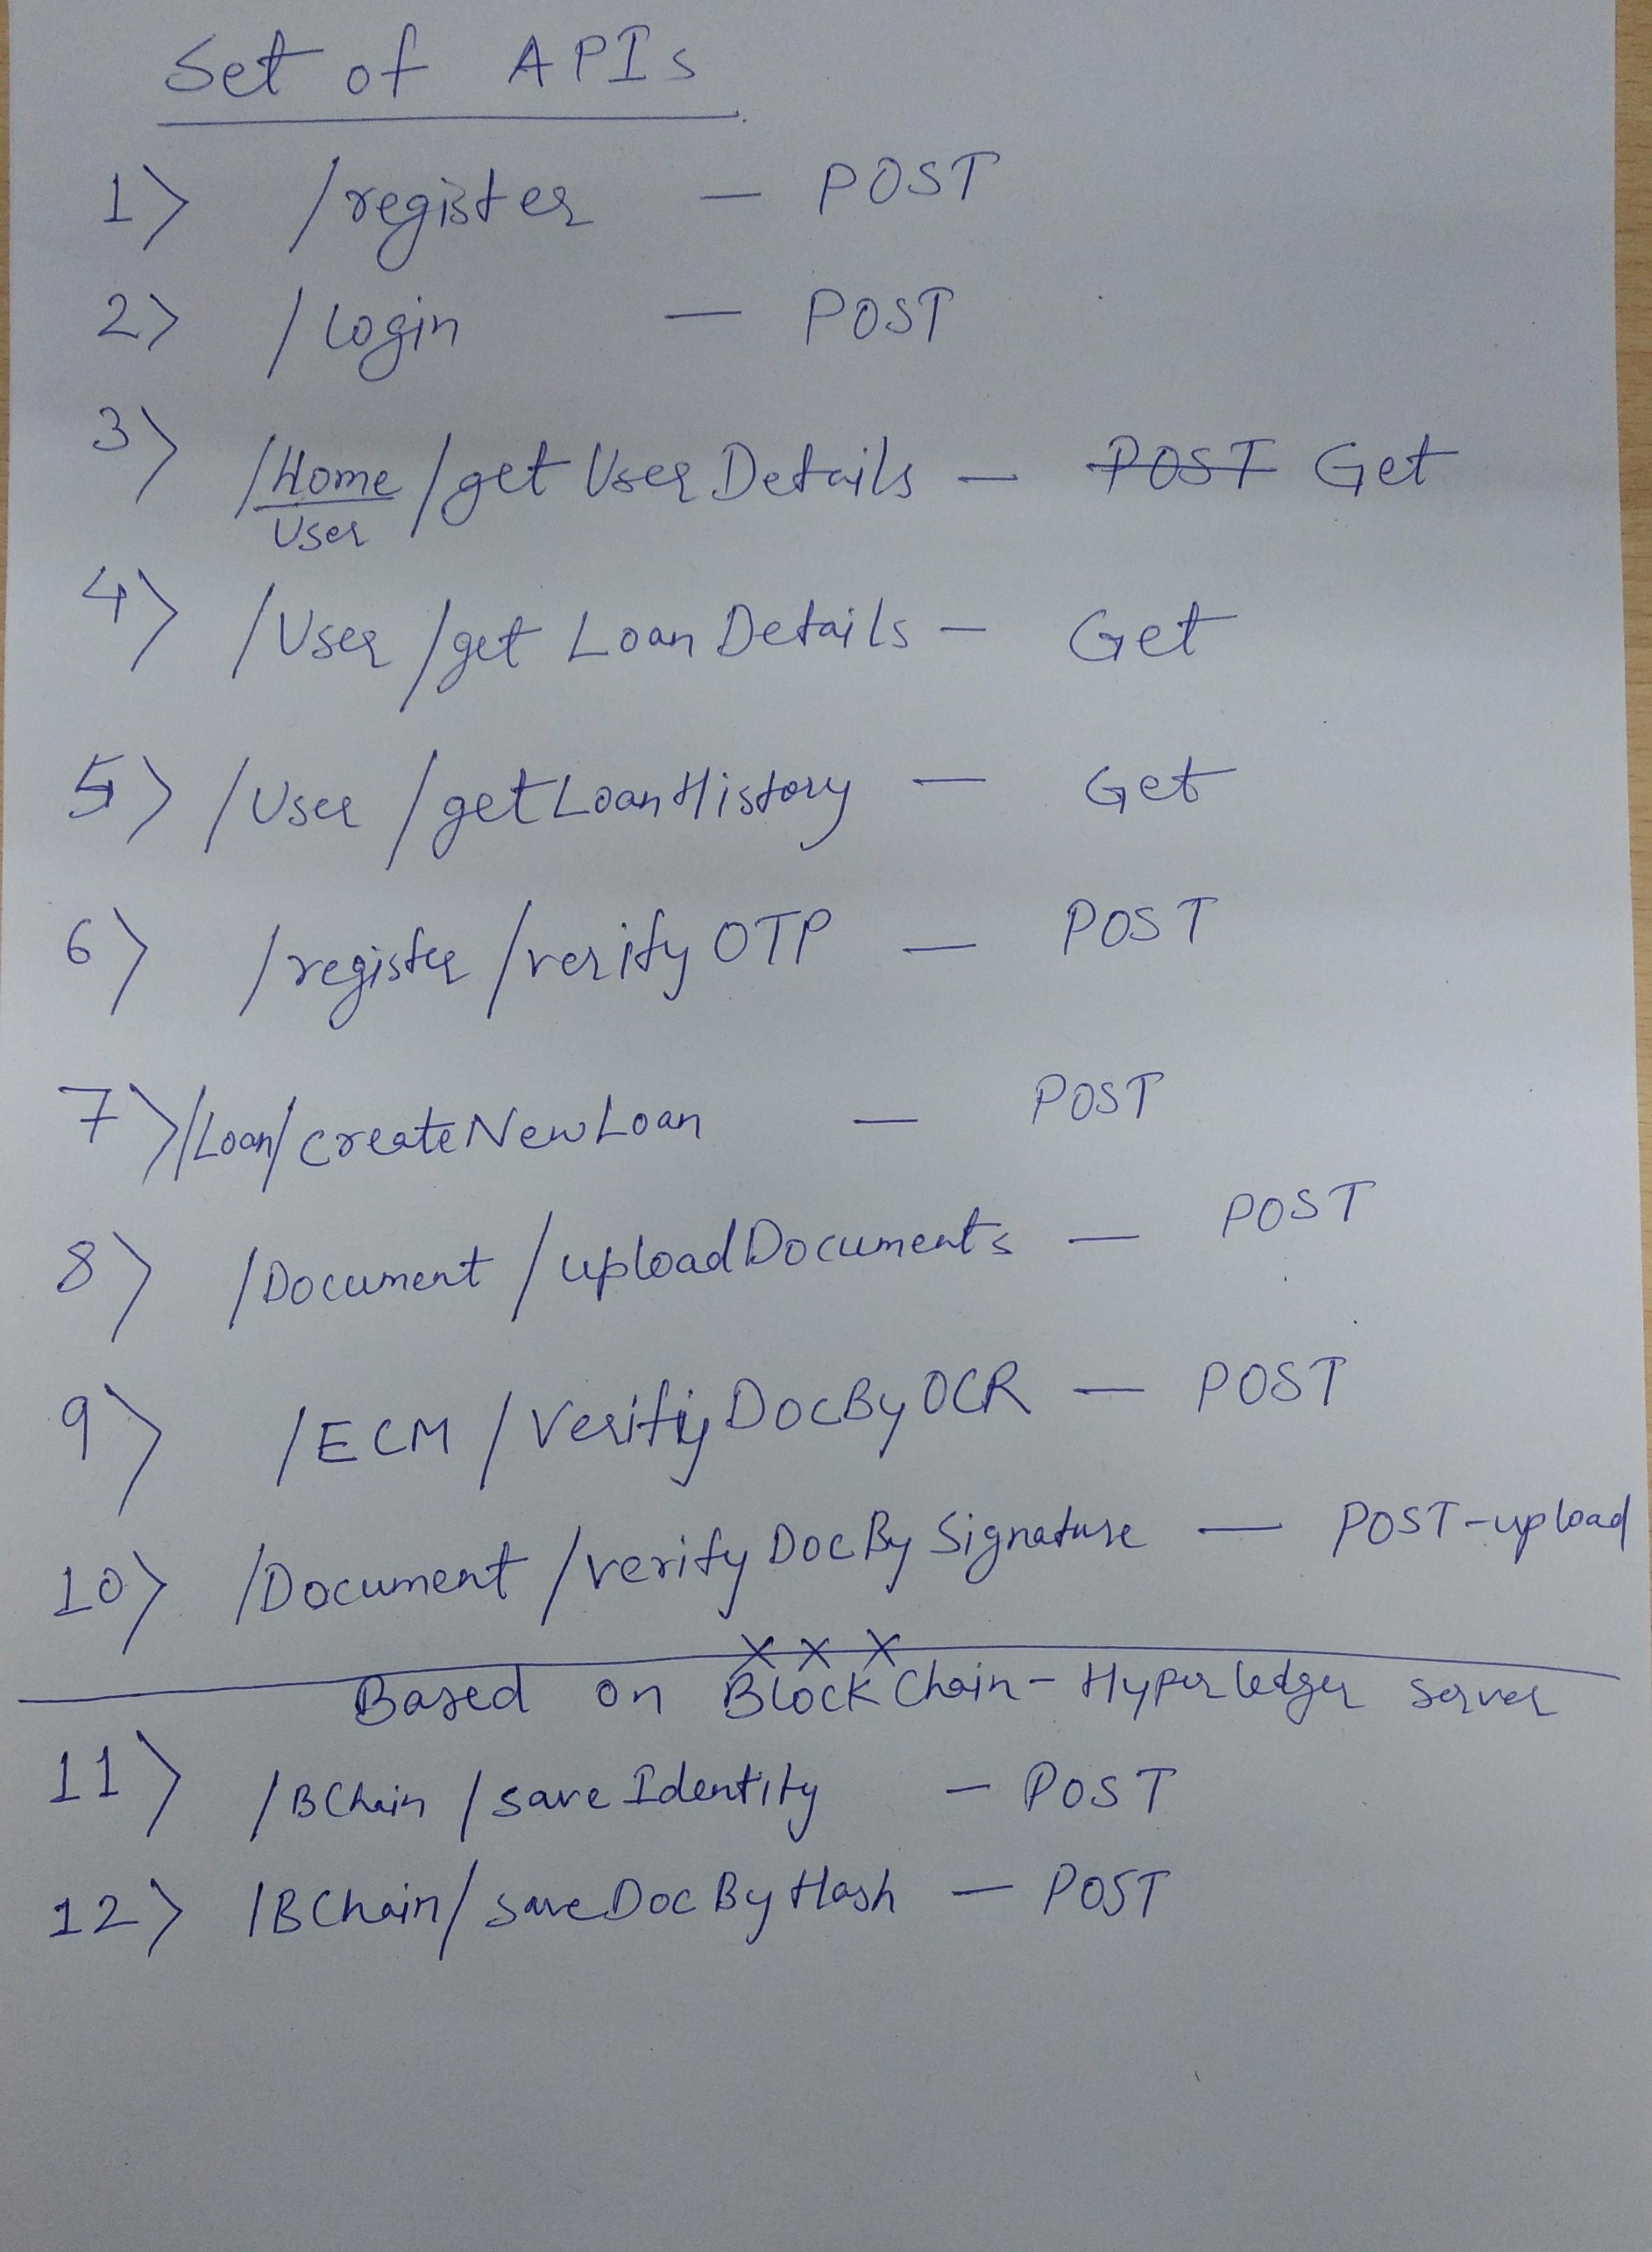 Set of APIs
1> /register — POST
2> /login — POST
3> /Home/getUserDetails — POST Get
User
4> /User/getLoanDetails — Get
5> /User/getLoanHistory — Get
6> /register/verifyOTP — POST
7> /Loan/createNewLoan — POST
8> /Document/uploadDocuments — POST
9> /ECM/VerifiyDocByOCR — POST
10> /Document/verifyDocBySignature — POST-upload
x x x
Based on BlockChain - Hyperledger server
11> /BChain/saveIdentity — POST
12> /BChain/saveDocByHash — POST